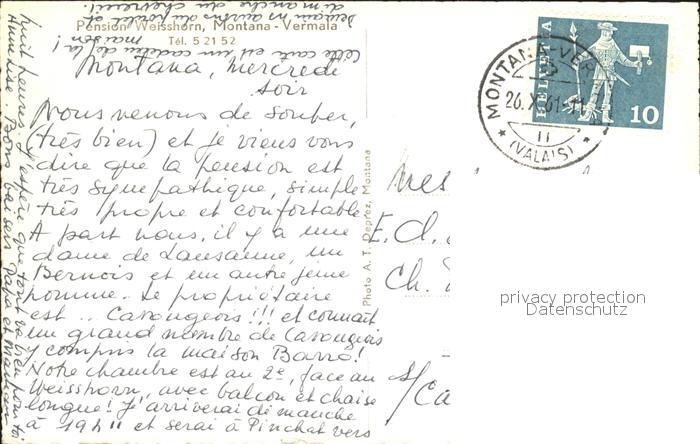 Pension Weisshorn, Montana - Vermala
Tél. 5 21 52
Montana, mercredi
soir
Nous venons de souper,
(très bien) et je viens vous
dire que la pension est
très sympathique, simple
très propre et confortable
A part nous, il y a une
dame de Lausanne, un
Bernois et un autre jeune
homme. Le propriétaire
est .. Carougeois !!! et connaît
un grand nombre de Carougeois
y compris la maison Barro!
Notre chambre est au 2e, face au
Weisshorn, avec balcon et chaise
longue! J'arriverai dimanche
à 19h 11 et serai à Pinchat vers
huit heures. J'espère que tout va bien pour toi
Anne Lise. Bons baisers Papa et Maman
Cette carte est un cadeau de la
maison!
Demain ns aurons du
dimanche du chevreuil!
Photo A. T. Deprez, Montana
HELVETIA
10
MONTANA-VER
26.X.61-11
(VALAIS)
E. d.
Ch.
privacy protection
Datenschutz